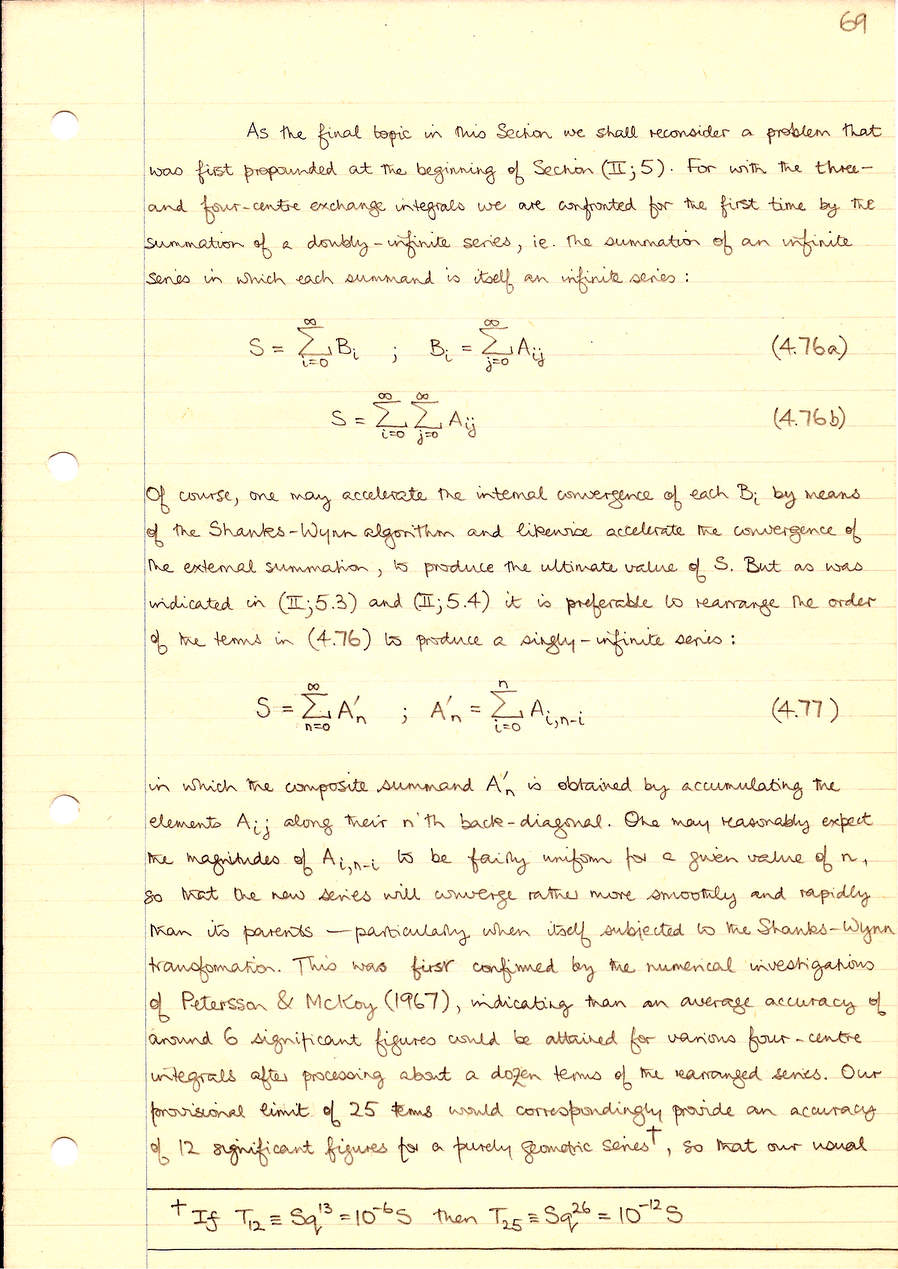 69
As the final topic in this Section we shall reconsider a problem that
was first propounded at the beginning of Section (II;5). For with the three-
and four-centre exchange integrals we are confronted for the first time by the
summation of a doubly-infinite series, ie. the summation of an infinite
series in which each summand is itself an infinite series :
S = ∑_{i=0}^{∞} B_i ; B_i = ∑_{j=0}^{∞} A_{ij} (4.76a)
S = ∑_{i=0}^{∞} ∑_{j=0}^{∞} A_{ij} (4.76b)
Of course, one may accelerate the internal convergence of each B_i by means
of the Shanks-Wynn algorithm and likewise accelerate the convergence of
the external summation, to produce the ultimate value of S. But as was
indicated in (II;5.3) and (II;5.4) it is preferable to rearrange the order
of the terms in (4.76) to produce a singly-infinite series :
S = ∑_{n=0}^{∞} A′_n ; A′_n = ∑_{i=0}^{n} A_{i,n-i} (4.77)
in which the composite summand A′_n is obtained by accumulating the
elements A_{ij} along their n'th back-diagonal. One may reasonably expect
the magnitudes of A_{i,n-i} to be fairly uniform for a given value of n,
so that the new series will converge rather more smoothly and rapidly
than its parents — particularly when itself subjected to the Shanks-Wynn
transfomation. This was first confirmed by the numerical investigations
of Petersson & McKoy (1967), indicating than an average accuracy of
around 6 significant figures could be attained for various four-centre
integrals after processing about a dozen terms of the rearranged series. Our
provisional limit of 25 terms would correspondingly provide an accuracy
of 12 significant figures for a purely geometric series†, so that our usual
† If T_{12} ≡ Sq^{13} = 10^{-6}S then T_{25} ≡ Sq^{26} = 10^{-12}S